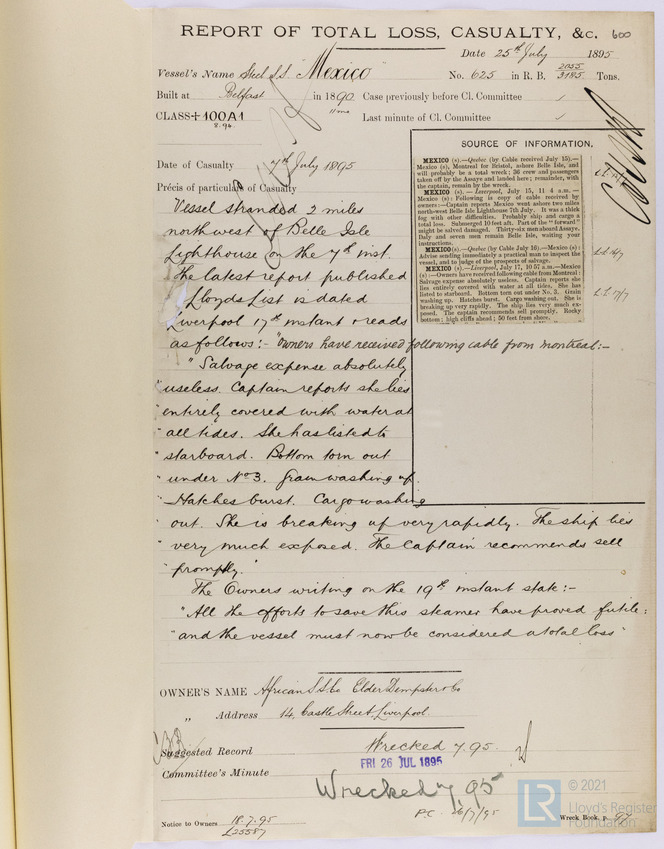 REPORT OF TOTAL LOSS, CASUALTY, &c. 600
Date 25th July 1895
Vessel's Name Steel S.S. "Mexico"
No. 625 in R. B. 2055 3185 Tons.
Built at Belfast in 1890 Case previously before Cl. Committee ✓
CLASS +100A1 8.94. Last minute of Cl. Committee ✓
SOURCE OF INFORMATION.
Date of Casualty 7th July 1895
Précis of particulars of Casualty
MEXICO (s).—Quebec (by Cable received July 15).—
Mexico (s), Montreal for Bristol, ashore Belle Isle, and
will probably be a total wreck; 36 crew and passengers
taken off by the Assaye and landed here; remainder, with
the captain, remain by the wreck.
MEXICO (s).—Liverpool, July 15, 11 4 a.m.—
Mexico (s): Following is copy of cable received by
owners:—Captain reports Mexico went ashore two miles
north-west Belle Isle Lighthouse 7th July. It was a thick
fog with other difficulties. Probably ship and cargo a
total loss. Submerged 10 feet aft. Part of the "forward"
might be salved damaged. Thirty-six men aboard Assaye.
Daly and seven men remain Belle Isle, waiting your
instructions.
MEXICO (s).—Quebec (by Cable July 16).—Mexico (s):
Advise sending immediately a practical man to inspect the
vessel, and to judge of the prospects of salvage.
L.L. 16/7
MEXICO (s).—Liverpool, July 17, 10 57 a.m.—Mexico
(s):—Owners have received following cable from Montreal:
Salvage expense absolutely useless. Captain reports she
lies entirely covered with water at all tides. She has
listed to starboard. Bottom torn out under No. 3. Grain
washing up. Hatches burst. Cargo washing out. She is
breaking up very rapidly. The ship lies very much ex-
posed. The captain recommends sell promptly. Rocky
bottom; high cliffs ahead; 50 feet from shore.
L.L. 17/7
Vessel stranded 2 miles
northwest of Belle Isle
Lighthouse on the 7th inst.
The latest report published
Lloyds List is dated
Liverpool 17th instant & reads
as follows:- "Owners have received following cable from Montreal:-
"Salvage expense absolutely
"useless. Captain reports she lies
"entirely covered with water at
"all tides. She has listed to
"starboard. Bottom torn out
"under No 3. Grain washing up.
"Hatches burst. Cargo washing
"out. She is breaking up very rapidly. The ship lies
"very much exposed. The Captain recommends sell
"promptly."
The Owners writing on the 19th instant state:-
"All the efforts to save this steamer have proved futile:
"and the vessel must now be considered a total loss"
OWNER'S NAME African S.S. Co Elder Dempster & Co
" Address 14, Castle Street, Liverpool.
Suggested Record Wrecked 7.95.
FRI 26 JUL 1895
Committee's Minute Wrecked 7.95
P.C. 26/7/95
Notice to Owners 18.7.95
L25587
Wreck Book, p. 97
LR © 2021
Lloyd's Register
Foundation